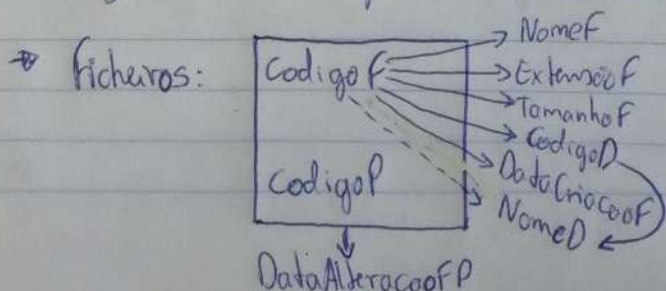 → ficheiros:
CodigoF
NomeF
ExtensãoF
TamanhoF
CodigoD
DataCriacaoF
NomeD
CodigoP
DataAlteracaoFP